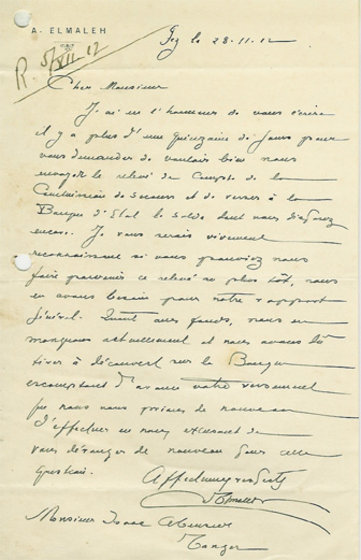 A. ELMALEH
Fez le 28.11.12
R. 5/XII 12
Cher Monsieur
J'ai eu l'honneur de vous écrire
il y a plus d'une quinzaine de jours pour
vous demander de vouloir bien nous
envoyer le relevé du Compte de la
Commission de secours et de verser à la
Banque d'Etat le solde dont vous disposez
encore. Je vous serais vivement
reconnaissant si vous pouviez nous
faire parvenir ce relevé au plus tôt, nous
en avons besoin pour notre rapport
général. Quant aux fonds, nous en
manquons actuellement et nous avons dû
tirer à découvert sur la Banque
escomptant d'avance votre versement
que nous vous prions de nouveau
d'effectuer en nous excusant de
vous déranger de nouveau pour cette
question.
Elmaleh
Monsieur Isaac
Tanger